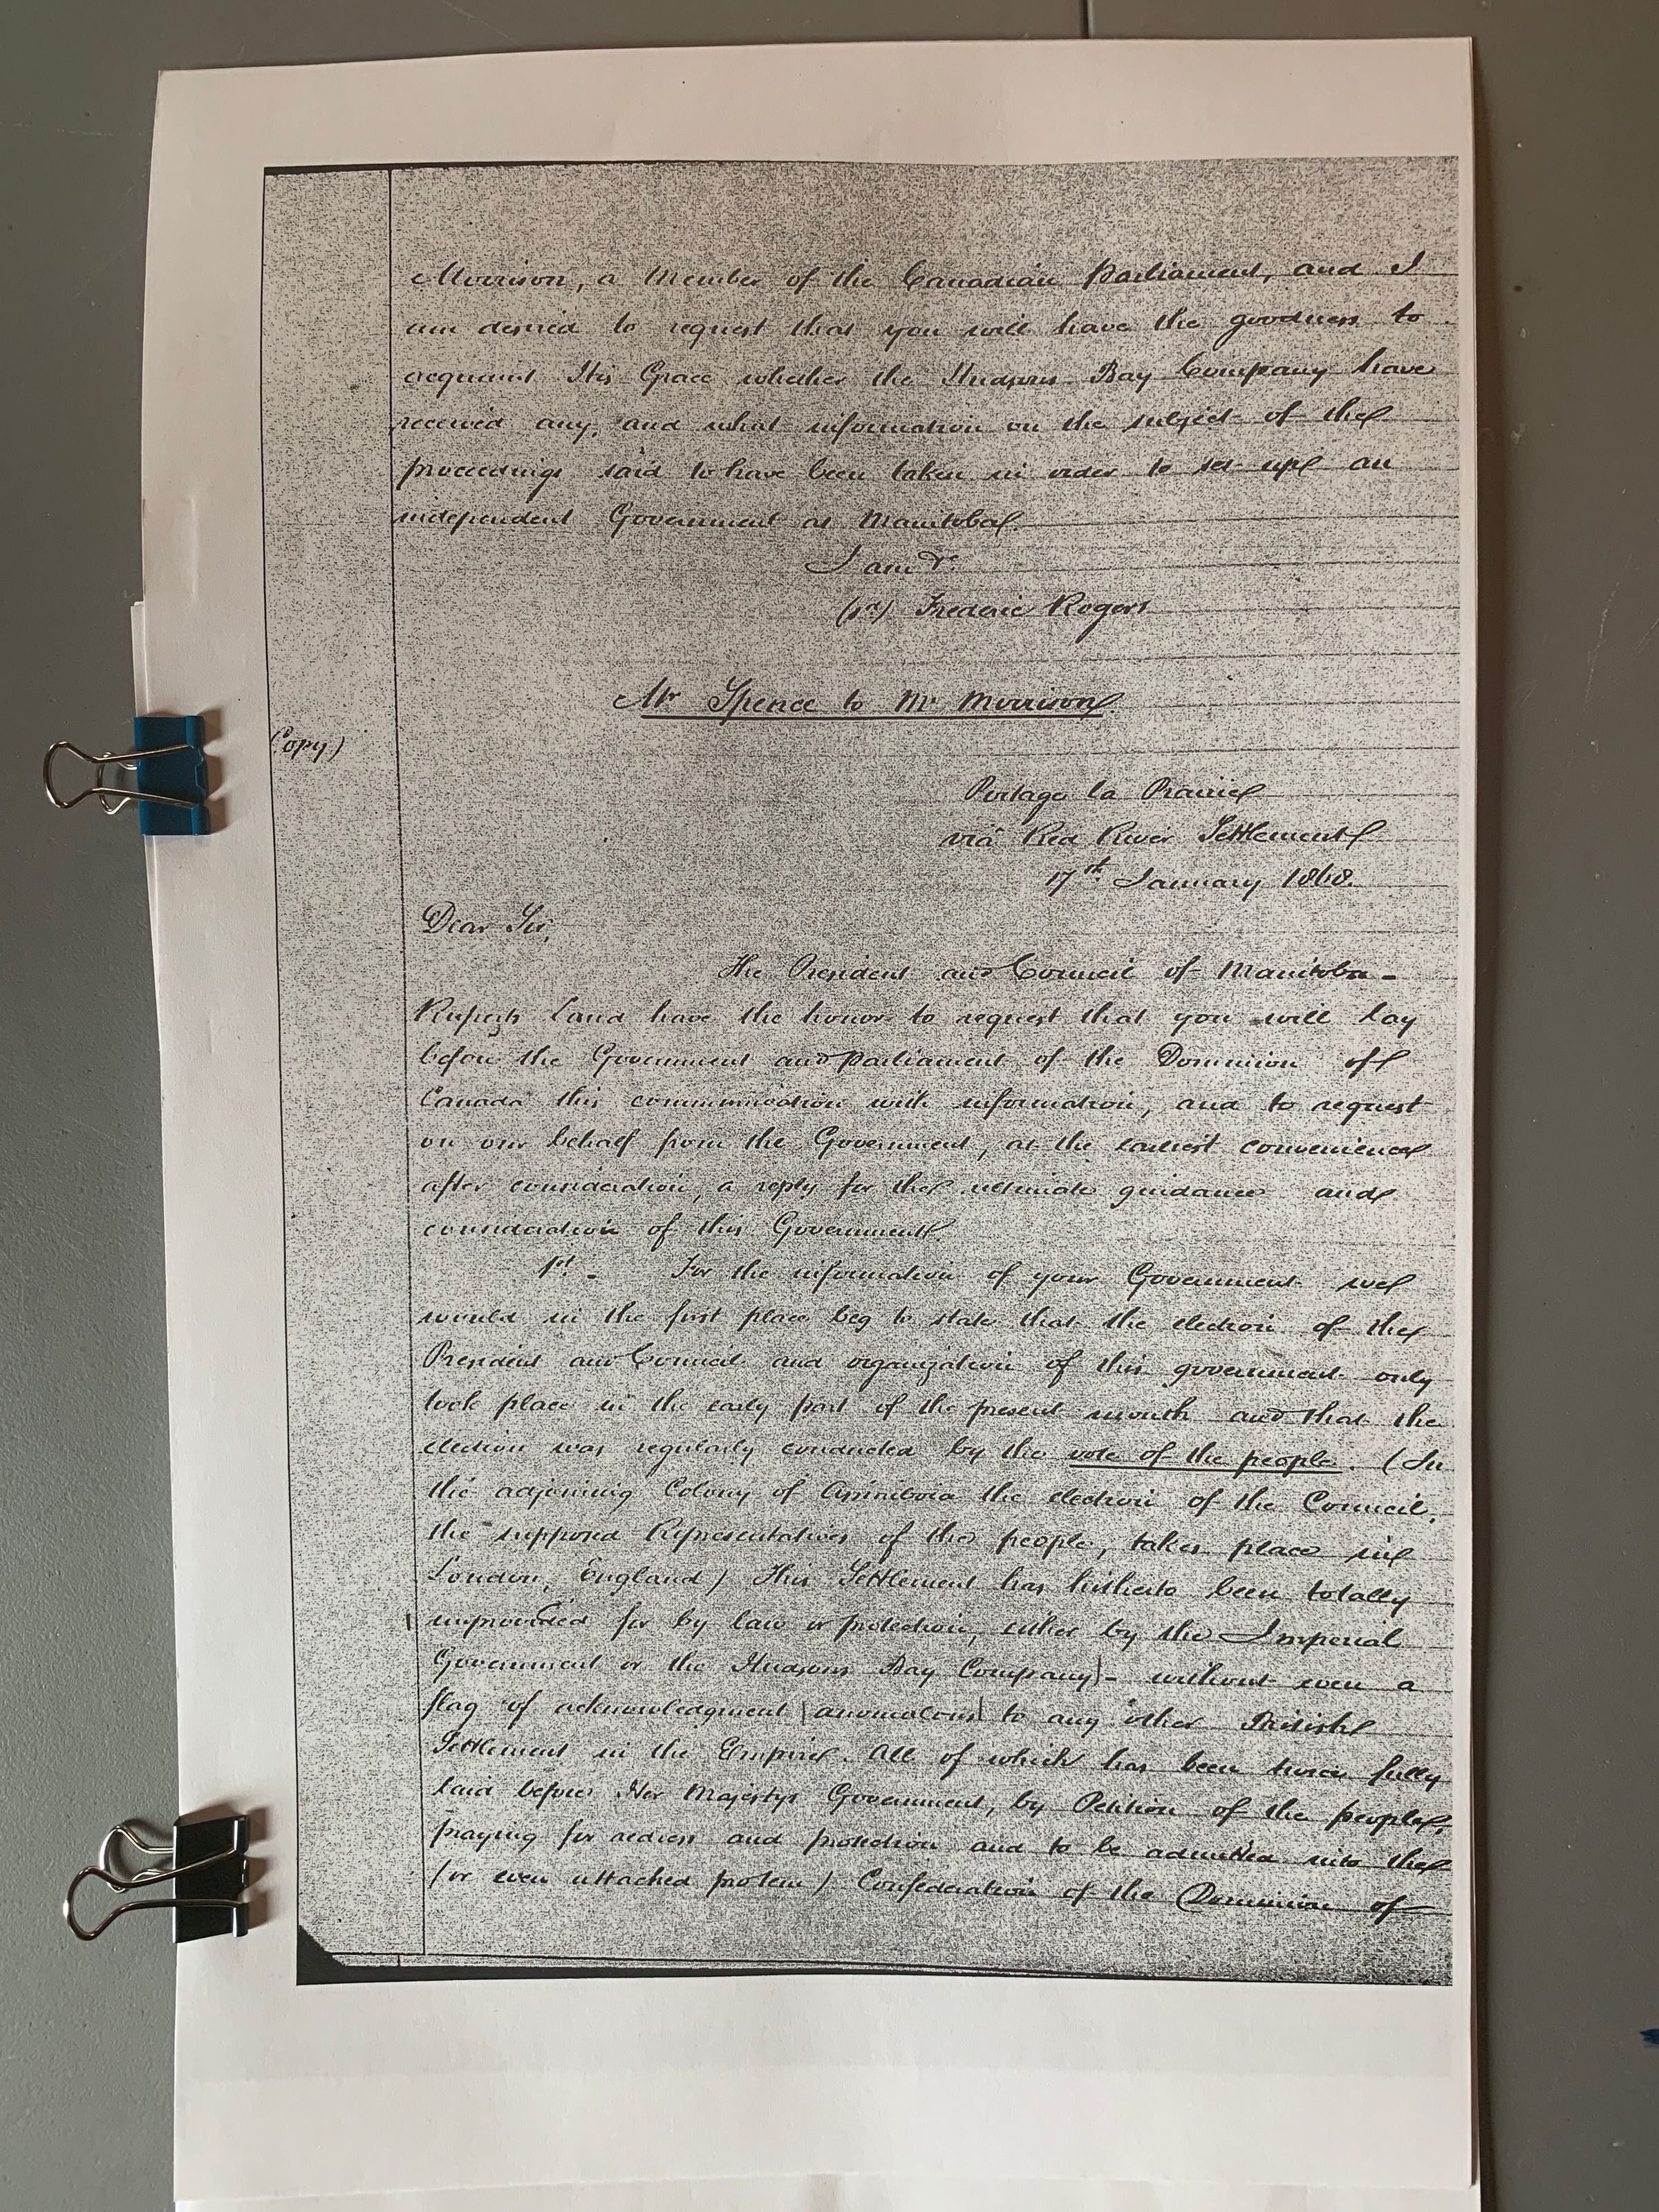 Morrison, a Member of the Canadian Parliament, and I
am desired to request that you will have the goodness to
acquaint His Grace whether the Hudsons Bay Company have
received any, and what information on the subject of the
proceedings said to have been taken in order to set up an
independent Government at Manitoba
I am &c
(sd) Frederic Rogers
Mr Spence to Mr Morrison
(Copy)
Portage la Prairie
via Red River Settlement
17th January 1868.
Dear Sir,
The President and Council of Manitoba -
Ruperts Land have the honor to request that you will lay
before the Government and Parliament of the Dominion of
Canada this communication with information, and to request
on our behalf from the Government, at the earliest convenience
after consideration, a reply for the ultimate guidance and
consideration of this Government.
1st - For the information of your Government we
would in the first place beg to state that the election of the
President and Council and organization of this government only
took place in the early part of the present month and that the
election was regularly conducted by the vote of the people. (In
the adjoining Colony of Assiniboia the election of the Council,
the supposed Representatives of the people, takes place in
London, England) This Settlement has hitherto been totally
unprovided for by law or protection, either by the Imperial
Government or the Hudsons Bay Company) - without even a
flag of acknowledgment (anomalous) to any other British
Settlement in the Empire. All of which has been twice fully
laid before Her Majestys Government, by Petition of the people,
praying for redress and protection and to be admitted into the
(or even attached protem) Confederation of the Dominion of